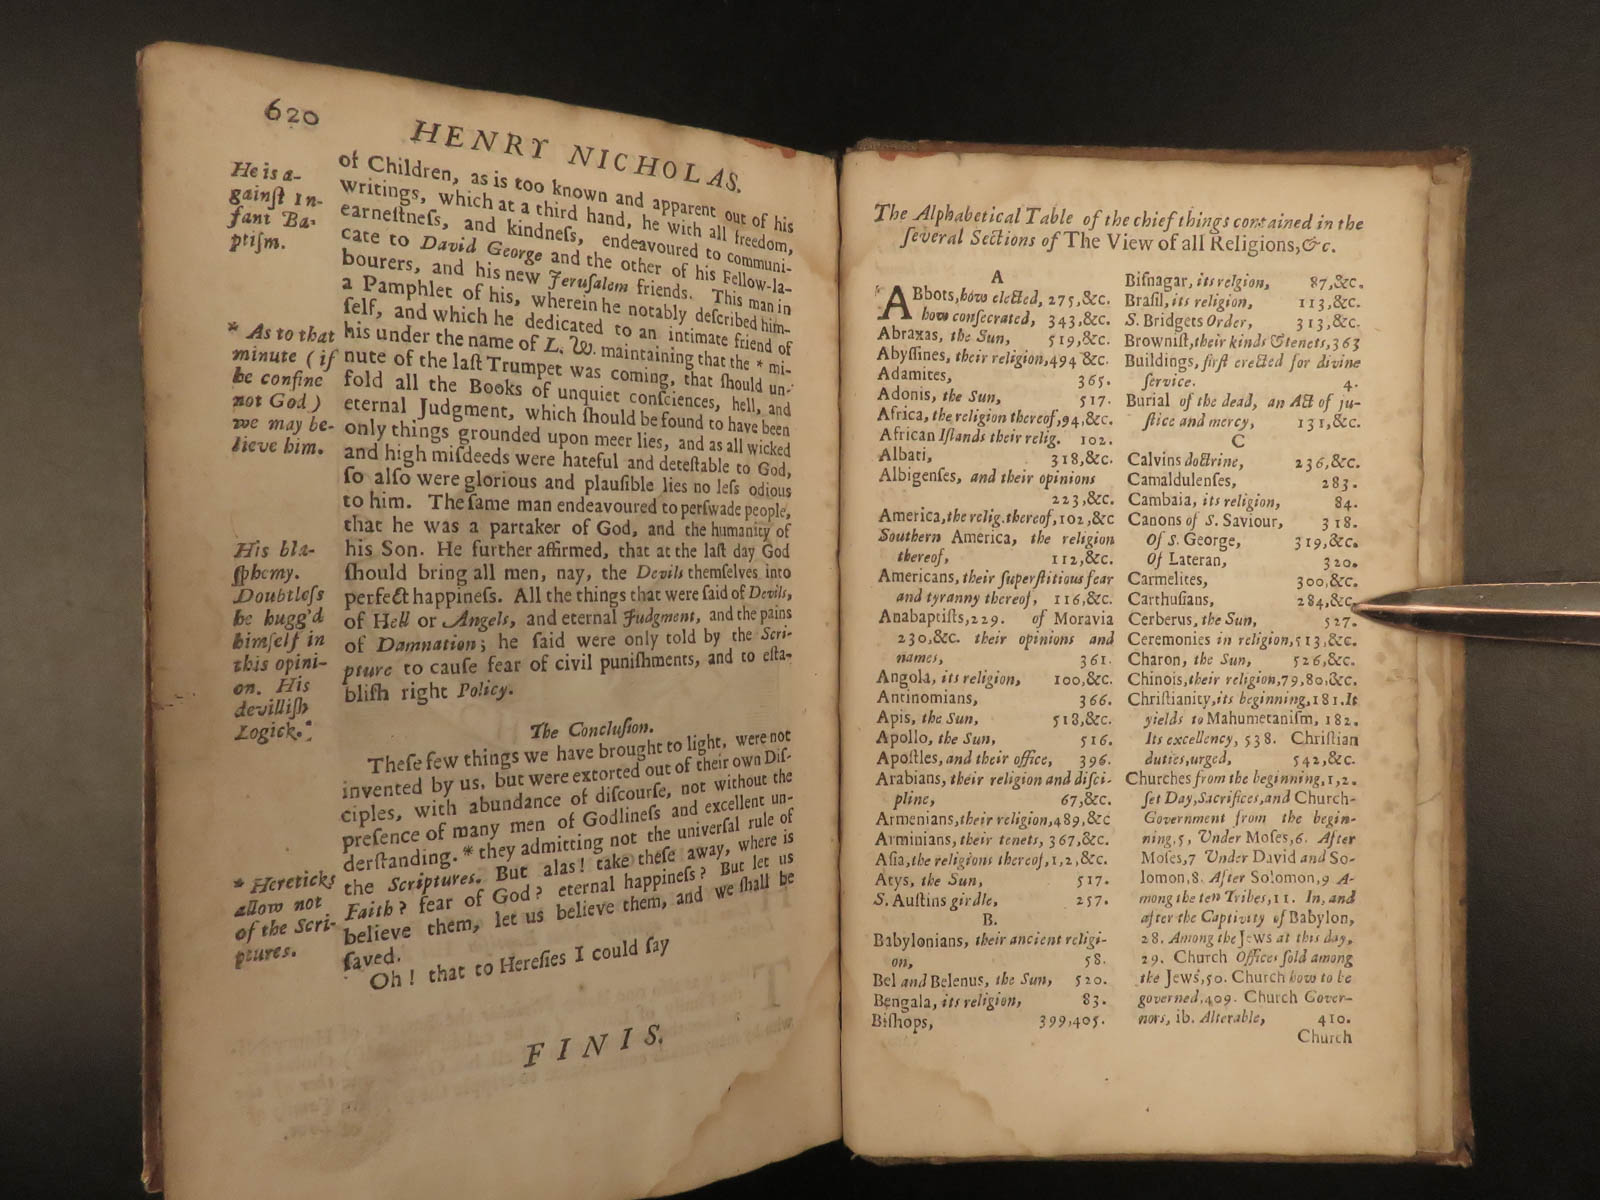 620
HENRY NICHOLAS.
He is a-
gainſt In-
fant Ba-
ptiſm.
of Children, as is too known and apparent out of his
writings, which at a third hand, he with all freedom,
earneſtneſs, and kindneſs, endeavoured to communi-
cate to David George and the other of his Fellow-la-
bourers, and his new Jeruſalem friends. This man in
a Pamphlet of his, wherein he notably deſcribed him-
ſelf, and which he dedicated to an intimate friend of
* As to that
minute (if
he confine
not God)
we may be-
lieve him.
his under the name of L. W. maintaining that the * mi-
nute of the laſt Trumpet was coming, that ſhould un-
fold all the Books of unquiet conſciences, hell, and
eternal Judgment, which ſhould be found to have been
only things grounded upon meer lies, and as all wicked
and high miſdeeds were hateful and deteſtable to God,
ſo alſo were glorious and plauſible lies no leſs odious
to him. The ſame man endeavoured to perſwade people,
that he was a partaker of God, and the humanity of
his Son. He further affirmed, that at the laſt day God
ſhould bring all men, nay, the Devils themſelves into
perfect happineſs. All the things that were ſaid of Devils,
of Hell or Angels, and eternal Judgment, and the pains
of Damnation; he ſaid were only told by the Scri-
pture to cauſe fear of civil puniſhments, and to eſta-
bliſh right Policy.
His bla-
ſphemy.
Doubtleſs
he hugg'd
himſelf in
this opini-
on. His
devilliſh
Logick.
The Concluſion.
Theſe few things we have brought to light, were not
invented by us, but were extorted out of their own Diſ-
ciples, with abundance of diſcourſe, not without the
preſence of many men of Godlineſs and excellent un-
derſtanding. * they admitting not the univerſal rule of
the Scriptures. But alas! take theſe away, where is
Faith? fear of God? eternal happineſs? But let us
believe them, let us believe them, and we ſhall be
ſaved.
Oh! that to Hereſies I could ſay
* Hereticks
allow not
of the Scri-
ptures.
FINIS.
The Alphabetical Table of the chief things contained in the
ſeveral Sections of The View of all Religions, &c.
A
ABbots, how elected, 275, &c.
how conſecrated, 343, &c.
Abraxas, the Sun, 519, &c.
Abyſſines, their religion, 494 &c.
Adamites, 365.
Adonis, the Sun, 517.
Africa, the religion thereof, 94, &c.
African Iſlands their relig. 102.
Albati, 318, &c.
Albigenſes, and their opinions
223, &c.
America, the relig. thereof, 102, &c
Southern America, the religion
thereof, 112, &c.
Americans, their ſuperſtitious fear
and tyranny thereof, 116, &c.
Anabaptiſts, 229. of Moravia
230, &c. their opinions and
names, 361.
Angola, its religion, 100, &c.
Antinomians, 366.
Apis, the Sun, 518, &c.
Apollo, the Sun, 516.
Apoſtles, and their office, 396.
Arabians, their religion and diſci-
pline, 67, &c.
Armenians, their religion, 489, &c
Arminians, their tenets, 367, &c.
Aſia, the religions thereof, 1, 2, &c.
Atys, the Sun, 517.
S. Auſtins girdle, 257.
B.
Babylonians, their ancient religi-
on, 58.
Bel and Belenus, the Sun, 520.
Bengala, its religion, 83.
Biſhops, 399, 405.
Biſnagar, its relgion, 87, &c.
Braſil, its religion, 113, &c.
S. Bridgets Order, 313, &c.
Browniſt, their kinds & tenets, 363
Buildings, firſt erected for divine
ſervice. 4.
Burial of the dead, an Act of ju-
ſtice and mercy, 131, &c.
C
Calvins doctrine, 236, &c.
Camaldulenſes, 283.
Cambaia, its religion, 84.
Canons of S. Saviour, 318.
Of S. George, 319, &c.
Of Lateran, 320.
Carmelites, 300, &c.
Carthuſians, 284, &c.
Cerberus, the Sun, 527.
Ceremonies in religion, 513, &c.
Charon, the Sun, 526, &c.
Chinois, their religion, 79, 80, &c.
Chriſtianity, its beginning, 181. It
yields to Mahumetaniſm, 182.
Its excellency, 538. Chriſtian
duties, urged, 542, &c.
Churches from the beginning, 1, 2.
ſet Day, Sacrifices, and Church-
Government from the begin-
ning, 5, Under Moſes, 6. After
Moſes, 7 Under David and So-
lomon, 8. After Solomon, 9 A-
mong the ten Tribes, 11. In, and
after the Captivity of Babylon,
28. Among the Jews at this day,
29. Church Offices ſold among
the Jews, 50. Church how to be
governed, 409. Church Gover-
nors, ib. Alterable, 410.
Church